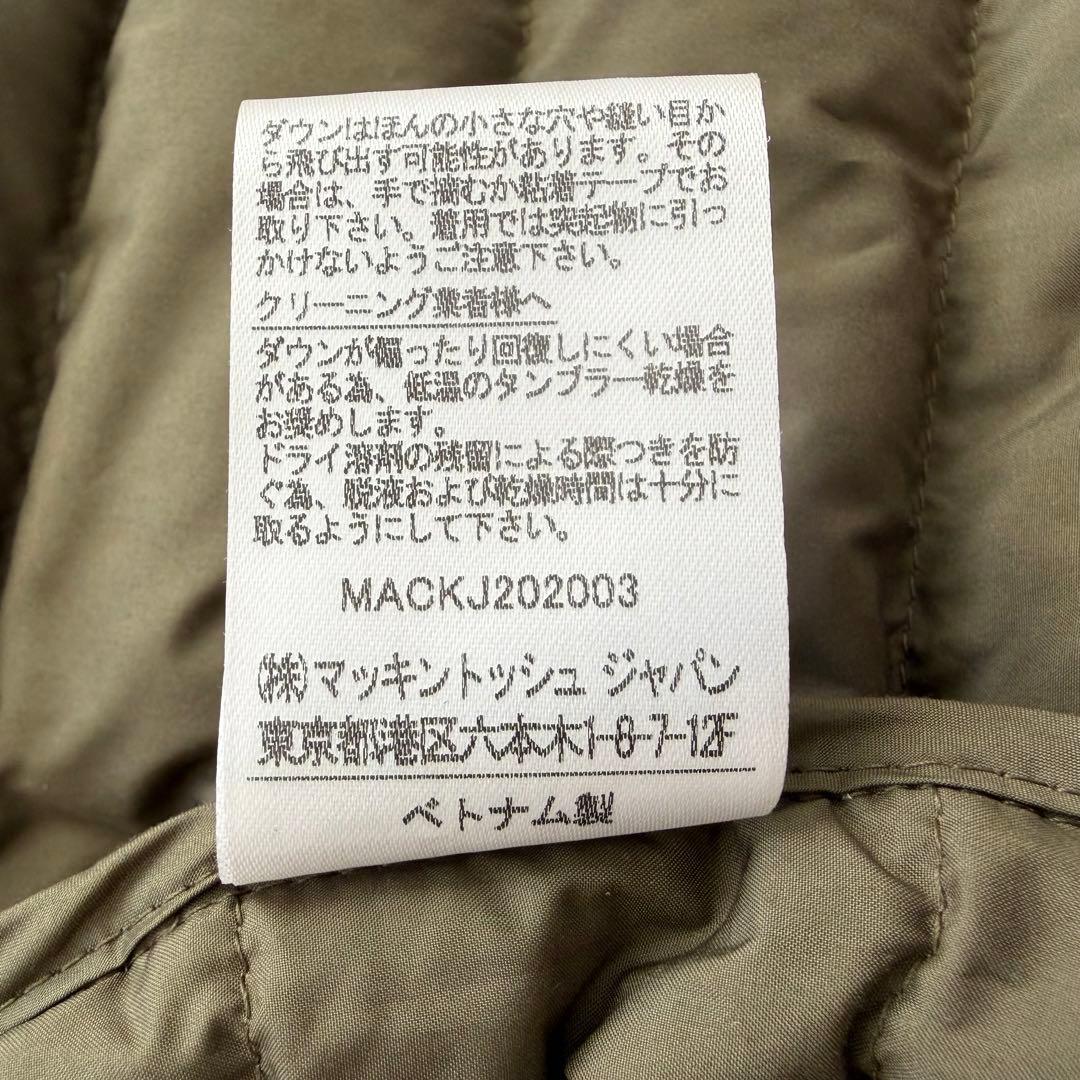 ダウンはほんの小さな穴や縫い目か
ら飛び出す可能性があります。その
場合は、手で摘むか粘着テープでお
取り下さい。着用では突起物に引っ
かけないようご注意下さい。
クリーニング業者様へ
ダウンが偏ったり回復しにくい場合
がある為、低温のタンブラー乾燥を
お奨めします。
ドライ溶剤の残留による際つきを防
ぐ為、脱液および乾燥時間は十分に
取るようにして下さい。
MACKJ202003
(株)マッキントッシュ ジャパン
東京都港区六本木1-8-7-12F
ベトナム製